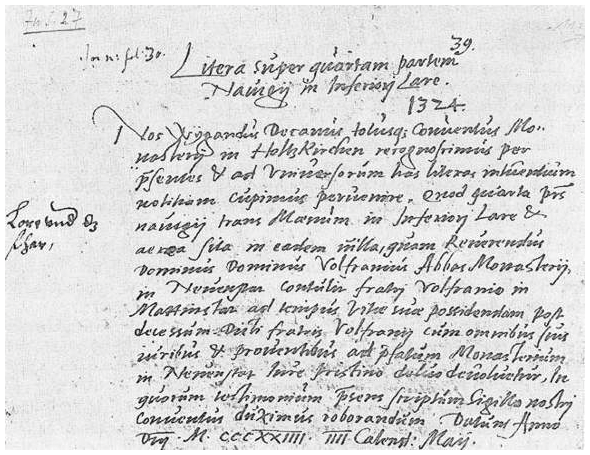 39.
Litera super quartam partem
Navigij in Inferiorj Lare.
1324.
Nos Wygandus Decanus totusq; Conventus Mo-
nasterij in Holtzkirchen recognoscimus per
p̃sentes & ad Universorum has literas intuentium
notitiam cupimus pervenire. Quod quarta prs̃
navigij trans Mœnum in Inferiorj Lare &
aerea sita in eadem villa, quam Reverendus
Dominus Dominus Volframius Abbas Monasterij,
in Neuenstat contulit fratrj Volframo in
Mattinstat ad tempus vitæ suæ possidendam post
decessum Dictj fratris Volframj cum omnibus suis
iuribus & proventibus ad p̃fatum Monasterium
in Nevenstat iure pristino devolvetur, In
quorum testimonium p̃sens scriptum Sigillo nostrj
Conventus duximus roborandum Datum Anno
M. CCCXXIIII. IIII Calend: Maij.